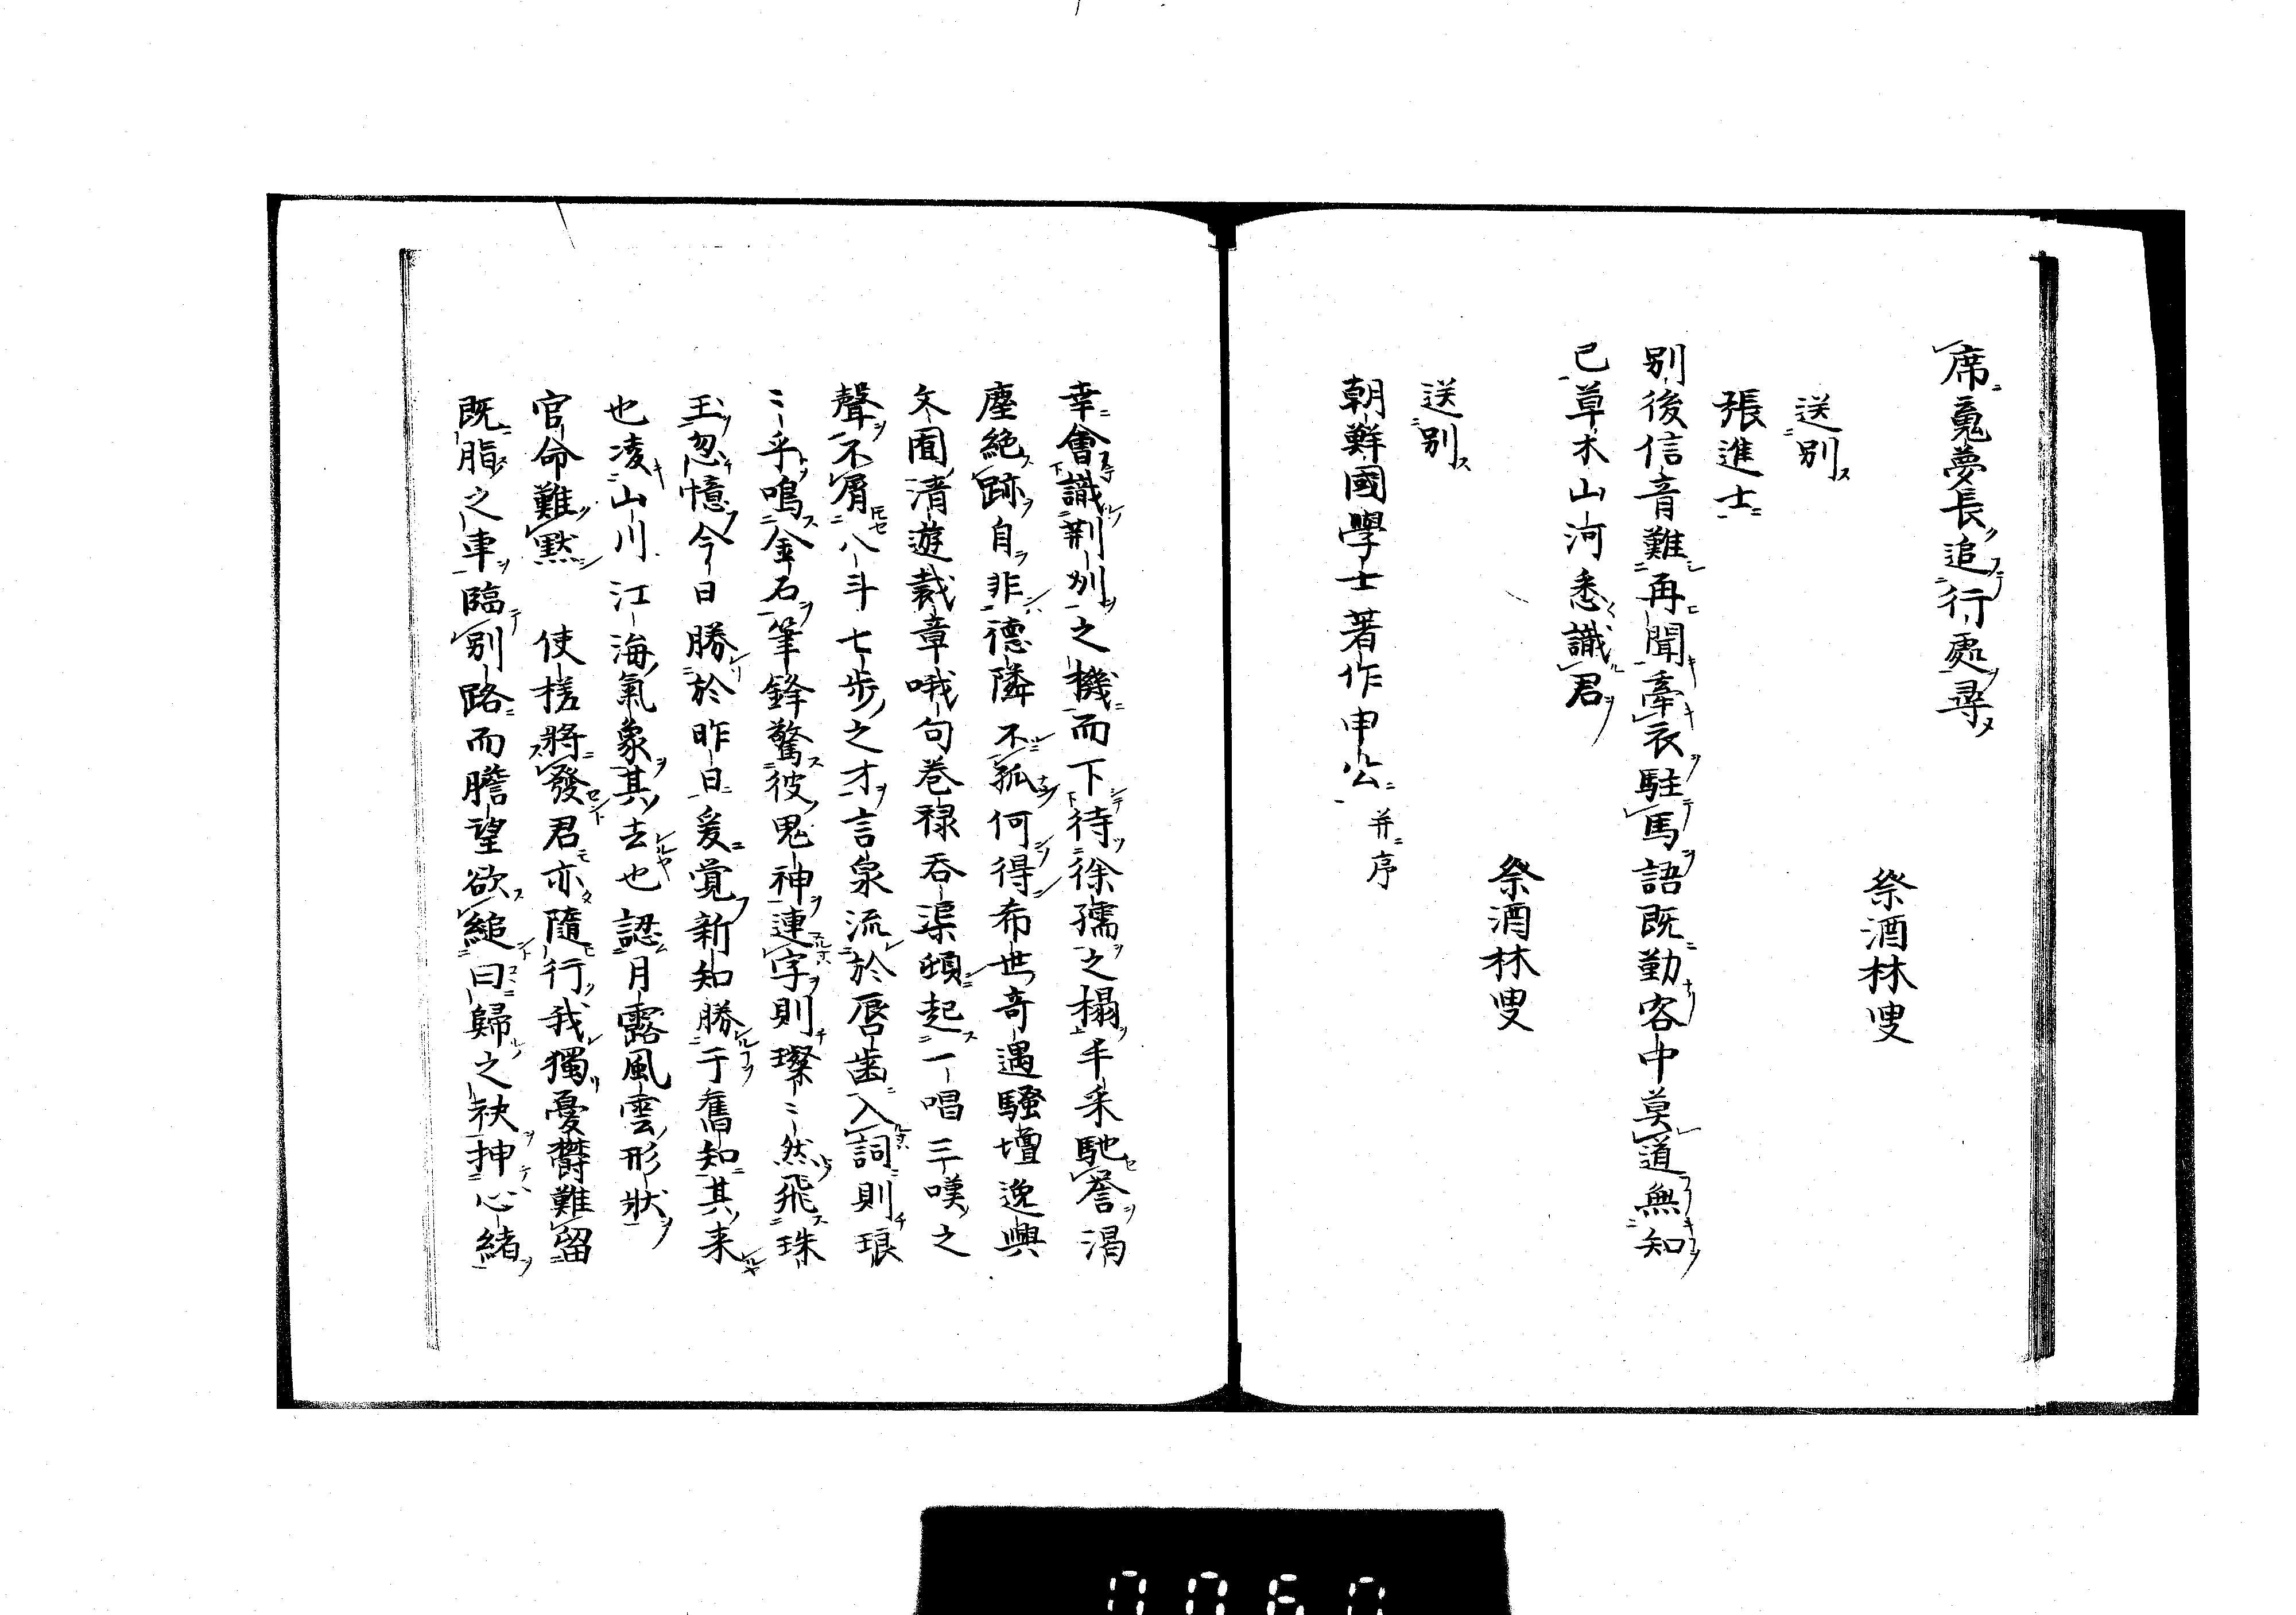 席夢長追行處尋
祭酒林叟
送別
張進士
別後信音難再聞牽衣駐馬語既勤客中莫道無知
己草木山河悉識君
祭酒林叟
送別
朝鮮國學士著作申公并序
幸會識荊州之機而下待徐孺之榻半采馳誉渇
塵絶跡自非德隣不孤何得希世奇遇騒壇逸興
文囿清遊裁章哦句巻禄吞渠頻起一唱三嘆之
聲不屑八斗七歩之才言泉流於唇齒入詞則琅
〻乎鳴金石筆鋒驚彼鬼神連字則璨〻然飛珠
玉忽憶今日勝於昨日爰覚新知勝于舊知其来
也凌山川江海氣象其去也認月露風雲形狀
官命難黙 使槎將發君亦隨行我獨憂欝難留
既脂之車臨別路而瞻望欲縋曰歸之袂抻心緒
0060